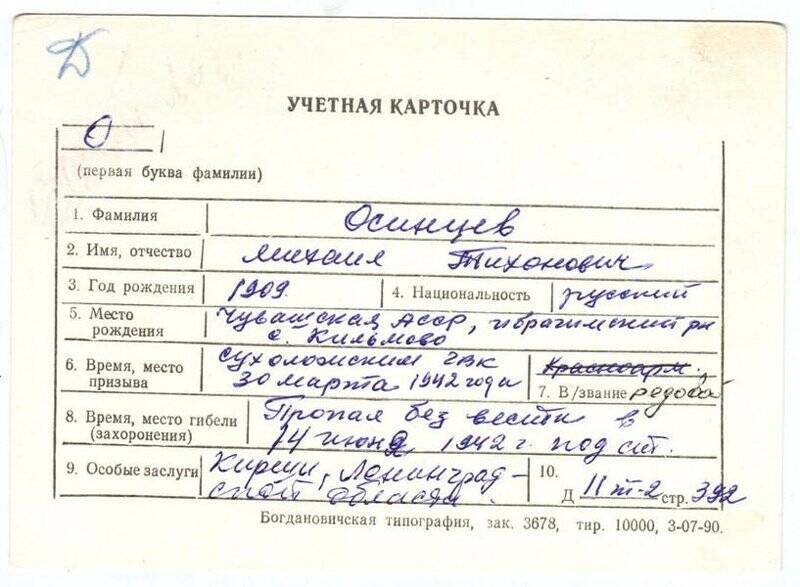 Д
УЧЕТНАЯ КАРТОЧКА
О
(первая буква фамилии)
1. Фамилия Осинцев
2. Имя, отчество Михаил Тихонович
3. Год рождения 1909. 4. Национальность русский
5. Место рождения Чувашская АССР, Ибрагимский рн
с. Кильмово
6. Время, место призыва Сухоложским ГВК
30 марта 1942 года
Красноарм.
7. В/звание редовой
8. Время, место гибели (захоронения) Пропал без вести в
14 июня 1942 г. под ст.
9. Особые заслуги Кириши, Ленинград-
ской области.
10.
Д 11 т-2 стр. 392
Богдановичская типография, зак. 3678, тир. 10000, 3-07-90.